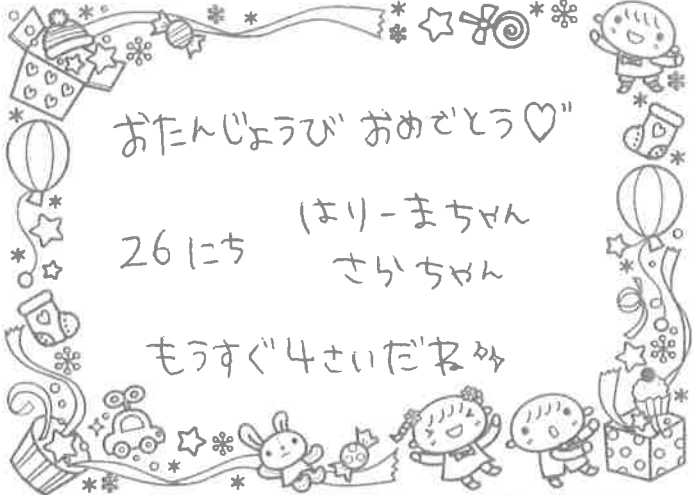 おたんじょうび おめでとう♡"
26にち はりーまちゃん
さらちゃん
もうすぐ4さいだね♪♪